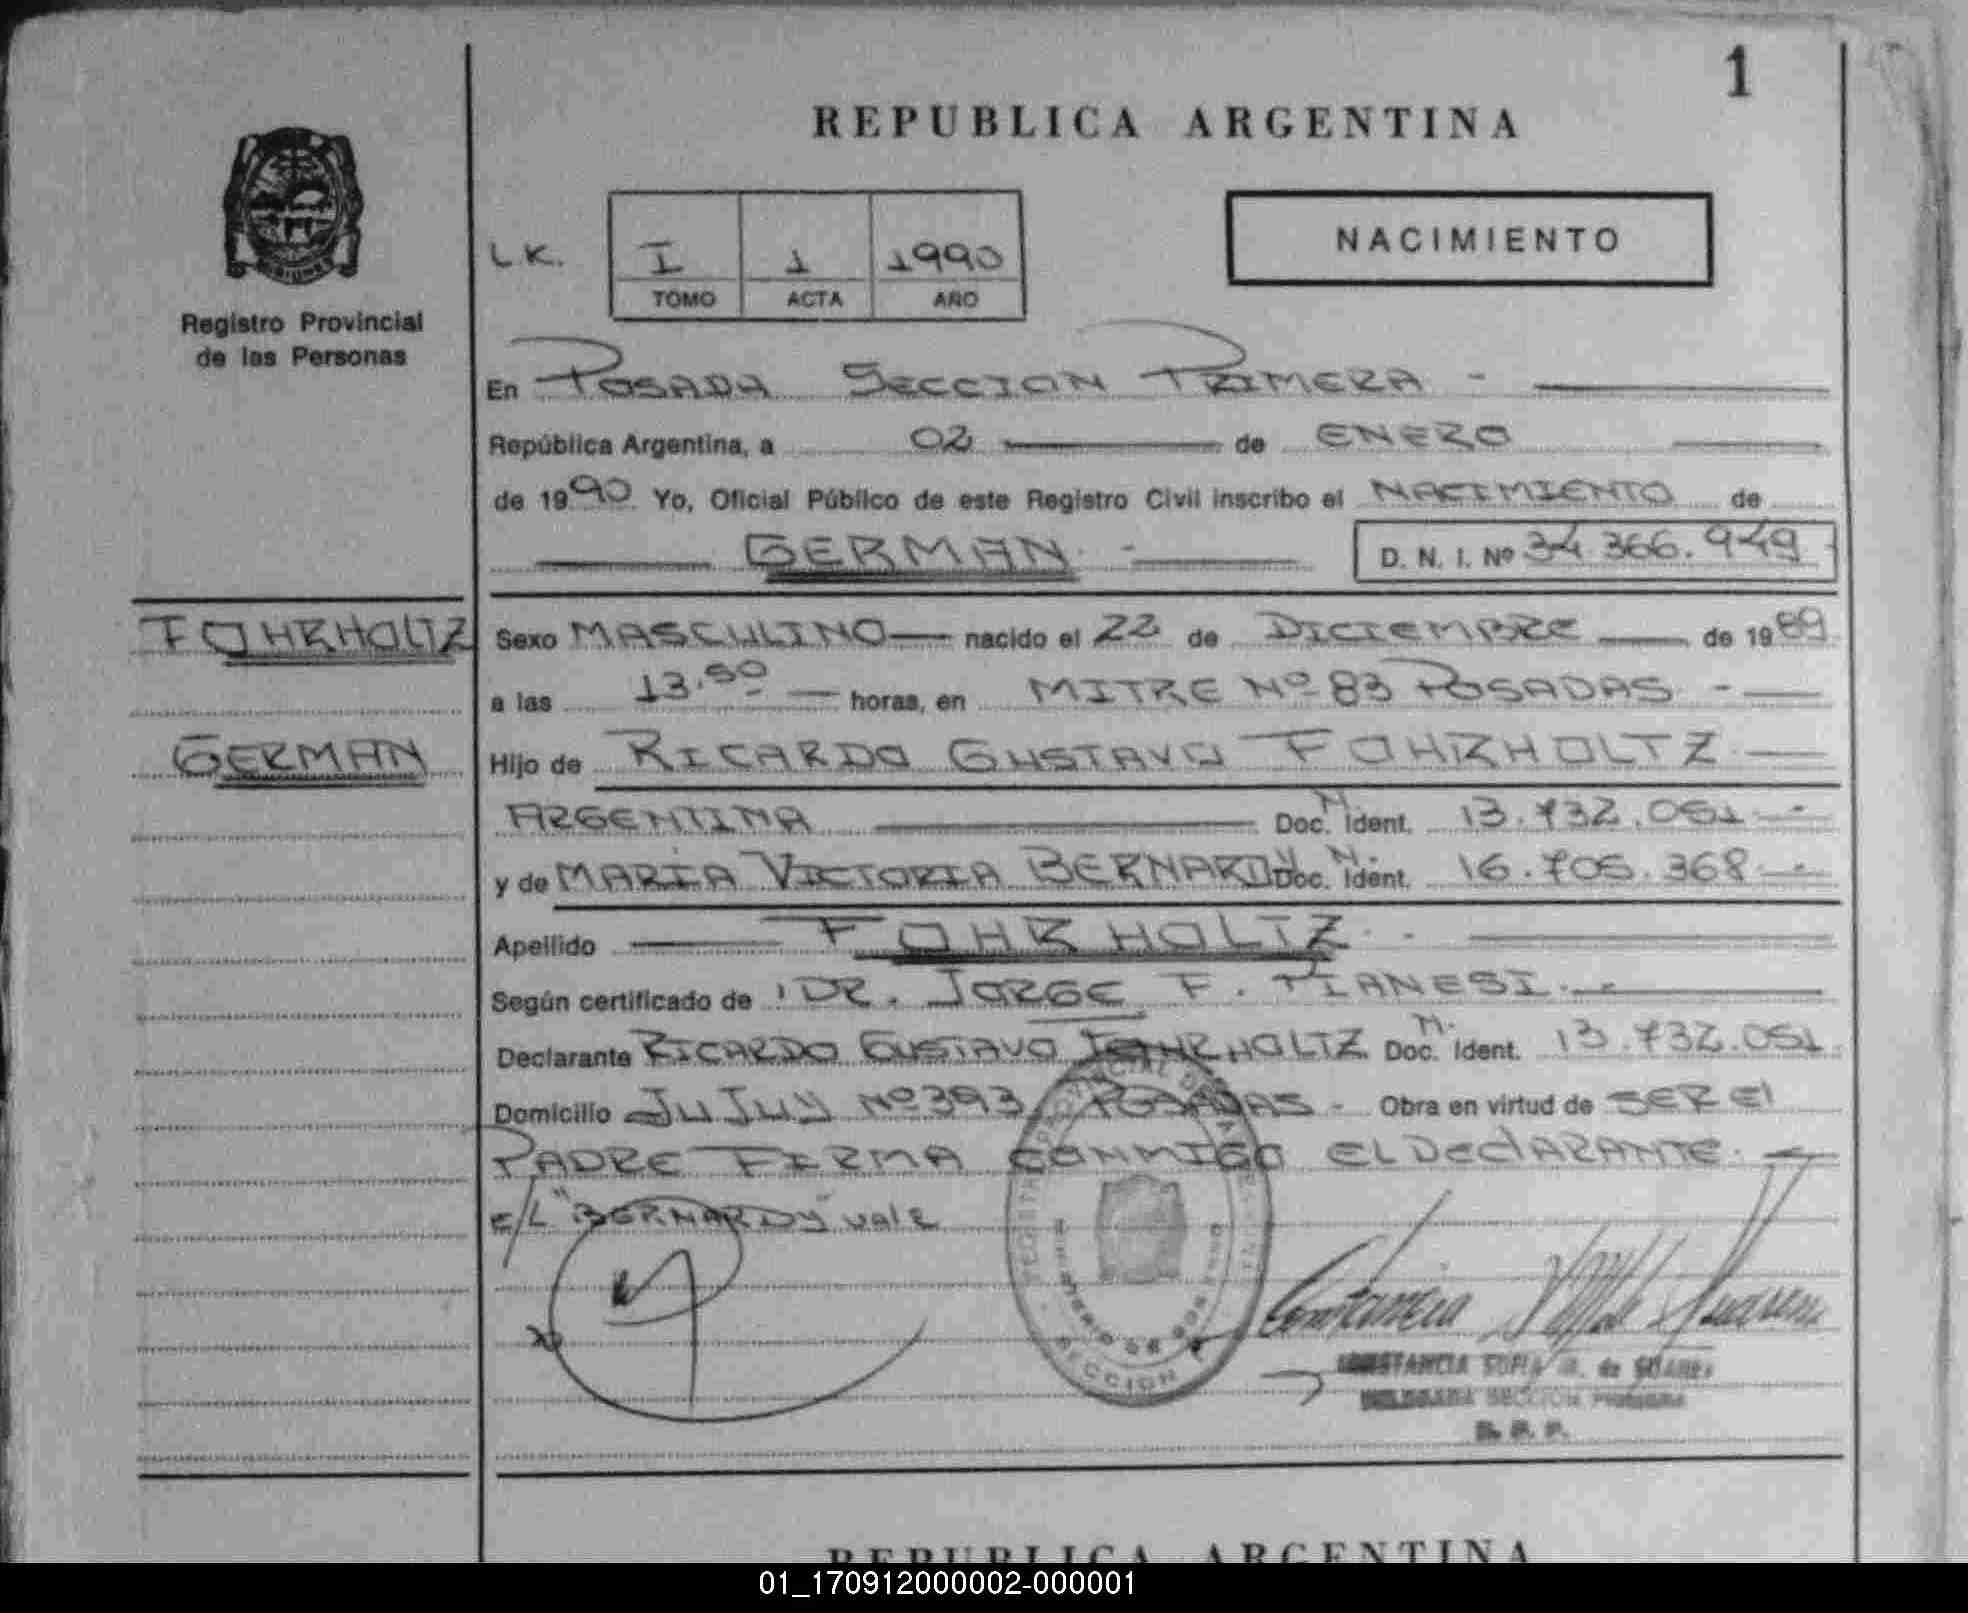 1
REPUBLICA ARGENTINA
Registro Provincial
de las Personas
LK. I 1 1990
TOMO ACTA AÑO
NACIMIENTO
En POSADA SECCION PRIMERA -
República Argentina, a 02 de ENERO
de 1990 Yo, Oficial Público de este Registro Civil inscribo el NACIMIENTO de
GERMAN - D. N. I. Nº 34.366.949
FOHRHOLTZ
GERMAN
Sexo MASCULINO nacido el 22 de DICIEMBRE de 1989
a las 13.50 horas, en MITRE Nº 83 POSADAS -
Hijo de RICARDO GUSTAVO FOHRHOLTZ
ARGENTINA Doc. N. Ident. 13.732.051 -
y de MARIA VICTORIA BERNARDY Doc. N. Ident. 16.705.368 -
Apellido FOHRHOLTZ -
Según certificado de DR. JORGE F. PIANESI. -
Declarante RICARDO GUSTAVO FOHRHOLTZ Doc. N. Ident. 13.732.051
Domicilio JUJUY Nº 393 POSADAS - Obra en virtud de SER El
PADRE FIRMA CONMIGO EL DEClARANTE. -
E/L "BERNARDY" vale
SECCION
CONSTANCIA SOFIA M. de SUAREZ
DELEGADA SECCION PRIMERA
R. P. P.
REPUBLICA ARGENTINA
01_170912000002-000001